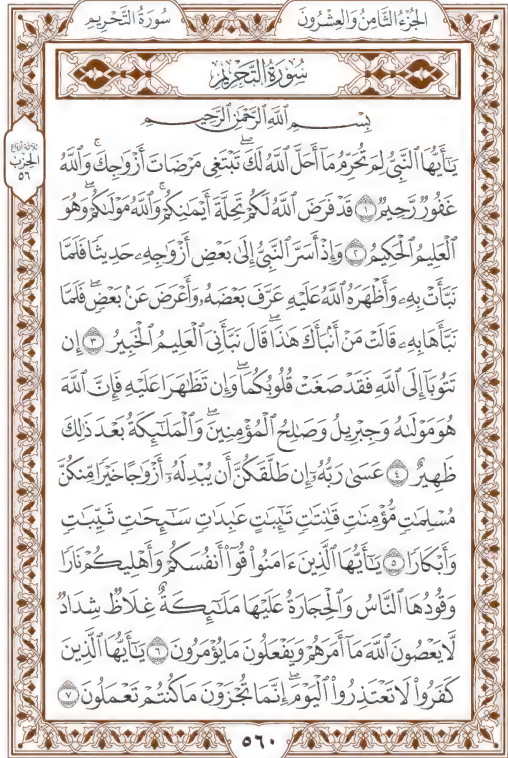 سُورَةُ التَّحْرِيمِ
الجُزْءُ الثَّامِنُ وَالعِشْرُونَ
سُورَةُ التَّحْرِيمِ
بِسْمِ ٱللَّهِ ٱلرَّحْمَٰنِ ٱلرَّحِيمِ
يَٰٓأَيُّهَا ٱلنَّبِيُّ لِمَ تُحَرِّمُ مَآ أَحَلَّ ٱللَّهُ لَكَۖ تَبْتَغِي مَرْضَاتَ أَزْوَٰجِكَۚ وَٱللَّهُ
غَفُورٞ رَّحِيمٞ ١ قَدْ فَرَضَ ٱللَّهُ لَكُمْ تَحِلَّةَ أَيْمَٰنِكُمْۚ وَٱللَّهُ مَوْلَىٰكُمْۖ وَهُوَ
ٱلْعَلِيمُ ٱلْحَكِيمُ ٢ وَإِذْ أَسَرَّ ٱلنَّبِيُّ إِلَىٰ بَعْضِ أَزْوَٰجِهِۦ حَدِيثٗا فَلَمَّا
نَبَّأَتْ بِهِۦ وَأَظْهَرَهُ ٱللَّهُ عَلَيْهِ عَرَّفَ بَعْضَهُۥ وَأَعْرَضَ عَنۢ بَعْضٖۖ فَلَمَّا
نَبَّأَهَا بِهِۦ قَالَتْ مَنْ أَنۢبَأَكَ هَٰذَاۖ قَالَ نَبَّأَنِيَ ٱلْعَلِيمُ ٱلْخَبِيرُ ٣ إِن
تَتُوبَآ إِلَى ٱللَّهِ فَقَدْ صَغَتْ قُلُوبُكُمَاۖ وَإِن تَظَٰهَرَا عَلَيْهِ فَإِنَّ ٱللَّهَ
هُوَ مَوْلَىٰهُ وَجِبْرِيلُ وَصَٰلِحُ ٱلْمُؤْمِنِينَۖ وَٱلْمَلَٰٓئِكَةُ بَعْدَ ذَٰلِكَ
ظَهِيرٌ ٤ عَسَىٰ رَبُّهُۥٓ إِن طَلَّقَكُنَّ أَن يُبْدِلَهُۥٓ أَزْوَٰجًا خَيْرٗا مِّنكُنَّ
مُسْلِمَٰتٖ مُّؤْمِنَٰتٖ قَٰنِتَٰتٖ تَٰٓئِبَٰتٍ عَٰبِدَٰتٖ سَٰٓئِحَٰتٖ ثَيِّبَٰتٖ
وَأَبْكَارٗا ٥ يَٰٓأَيُّهَا ٱلَّذِينَ ءَامَنُواْ قُوٓاْ أَنفُسَكُمْ وَأَهْلِيكُمْ نَارٗا
وَقُودُهَا ٱلنَّاسُ وَٱلْحِجَارَةُ عَلَيْهَا مَلَٰٓئِكَةٌ غِلَاظٞ شِدَادٞ
لَّا يَعْصُونَ ٱللَّهَ مَآ أَمَرَهُمْ وَيَفْعَلُونَ مَا يُؤْمَرُونَ ٦ يَٰٓأَيُّهَا ٱلَّذِينَ
كَفَرُواْ لَا تَعْتَذِرُواْ ٱلْيَوْمَۖ إِنَّمَا تُجْزَوْنَ مَا كُنتُمْ تَعْمَلُونَ ٧
الحِزْب
٥٦
٥٦٠